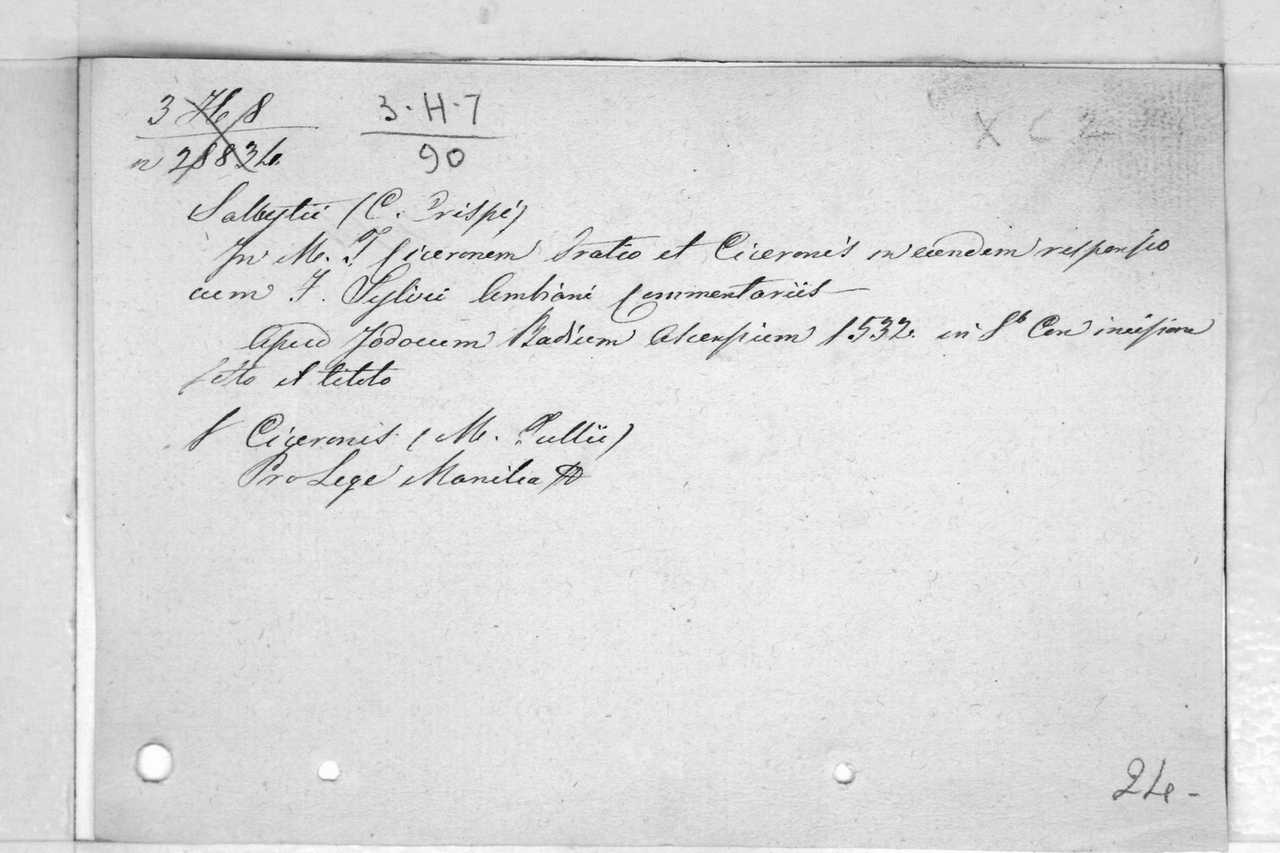 3 H 8 3·H·7 X C 2
n 28834 90
Sallustii (C. Crispi)
In M. T Ciceronem Oratio et Ciceronis in eundem responsio
cum F. Sylvii Ambiani Commentariis
Apud Jodocum Badium Ascensium 1532. in 8º Con incisione
sotto il titolo
S Ciceronis (M. Tullii)
Pro Lege Manilia
24-